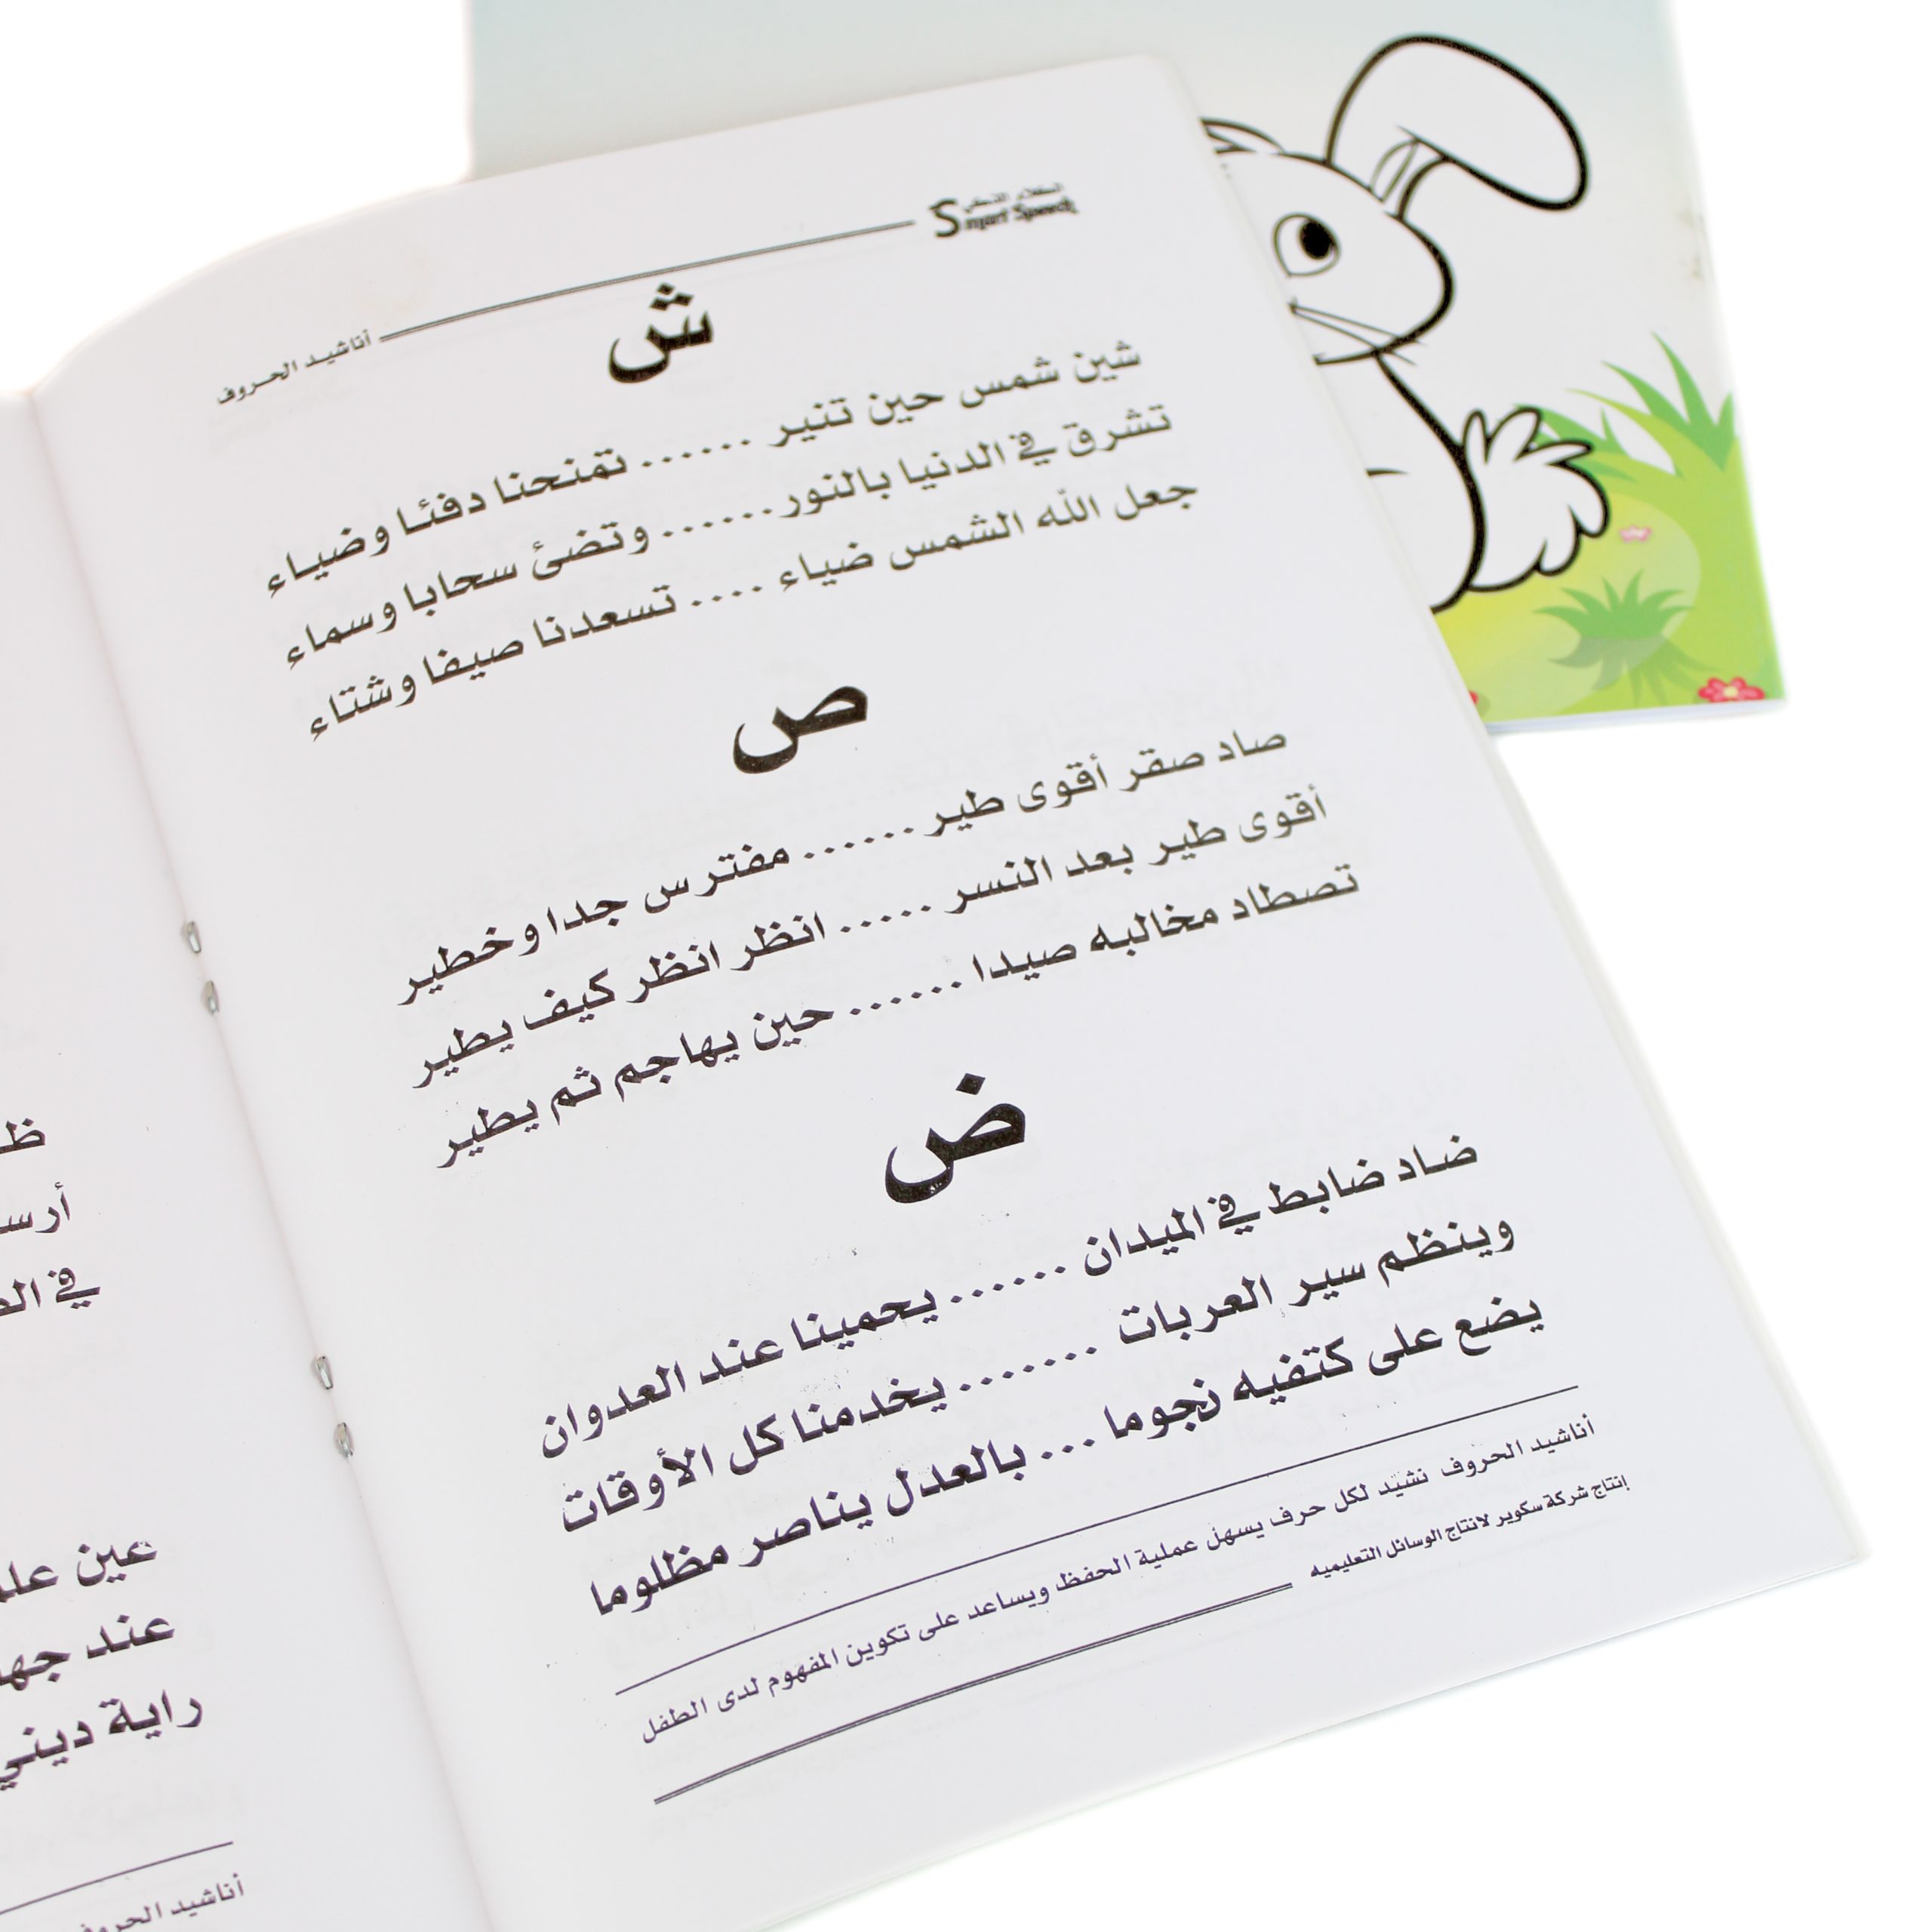 Smart Speech
أناشيد الحروف
ش
شين شمس حين تنير ...... تمنحنا دفئا وضياء
تشرق في الدنيا بالنور ...... وتضئ سحابا وسماء
جعل الله الشمس ضياء .... تسعدنا صيفا وشتاء
ص
صاد صقر أقوى طير ...... مفترس جدا وخطير
أقوى طير بعد النسر ..... انظر انظر كيف يطير
تصطاد مخالبه صيدا ...... حين يهاجم ثم يطير
ض
ضاد ضابط في الميدان ...... يحمينا عند العدوان
وينظم سير العربات ....... يخدمنا كل الأوقات
يضع على كتفيه نجوما ... بالعدل يناصر مظلوما
أناشيد الحروف نشيد لكل حرف يسهل عملية الحفظ ويساعد على تكوين المفهوم لدى الطفل
إنتاج شركة سكوير لانتاج الوسائل التعليميه
في
عين
عند
راية
أناشيد الحروف